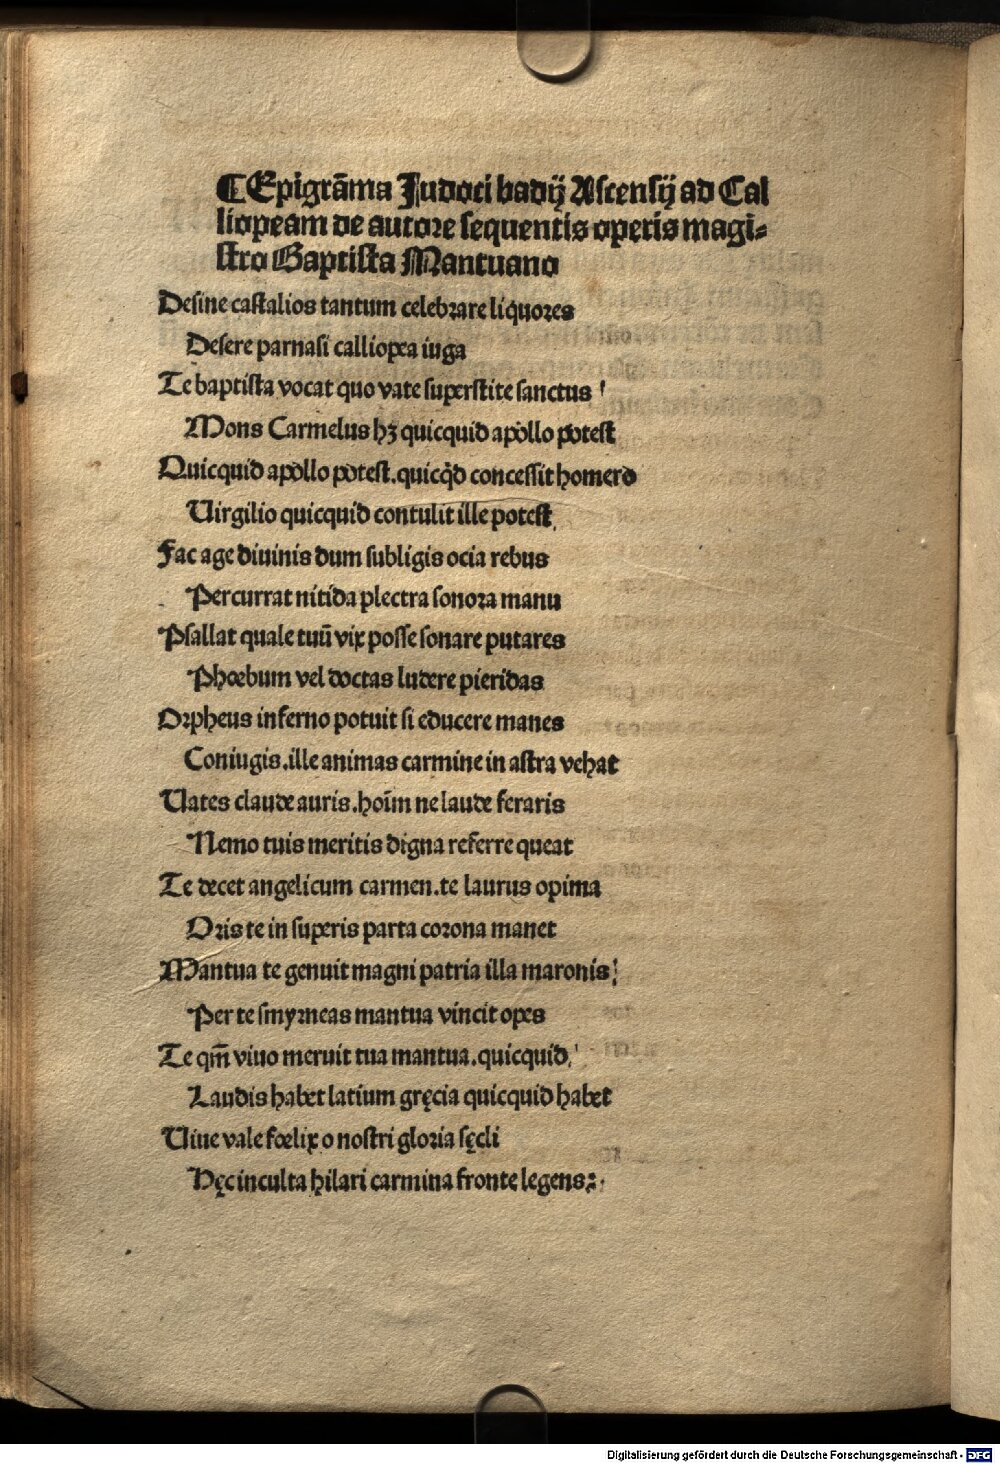 ¶Epigrāma Iudoci badij Ascensij ad Cal
liopeam de autore sequentis operis magi-
stro Baptista Mantuano
Desine castalios tantum celebrare liquores
Desere parnasi calliopea iuga
Te baptista vocat quo vate superstite sanctus
Mons Carmelus hꝫ quicquid apollo potest
Quicquid apollo potest. quicq̇d concessit homero
Virgilio quicquid contulit ille potest
Fac age diuinis dum subligis ocia rebus
Percurrat nitida plectra sonora manu
Psallat quale tuū vix posse sonare putares
Phœbum vel doctas ludere pieridas
Orpheus inferno potuit si educere manes
Coniugis. ille animas carmine in astra vehat
Vates claude auris. hoīm ne laude feraris
Nemo tuis meritis digna referre queat
Te decet angelicum carmen. te laurus opima
Oris te in superis parta corona manet
Mantua te genuit magni patria illa maronis
Per te smyrneas mantua vincit opes
Te qm̄ viuo meruit tua mantua. quicquid
Laudis habet latium gręcia quicquid habet
Viue vale fœlix o nostri gloria sęcli
Hęc inculta hilari carmina fronte legens:
Digitalisierung gefördert durch die Deutsche Forschungsgemeinschaft - DFG